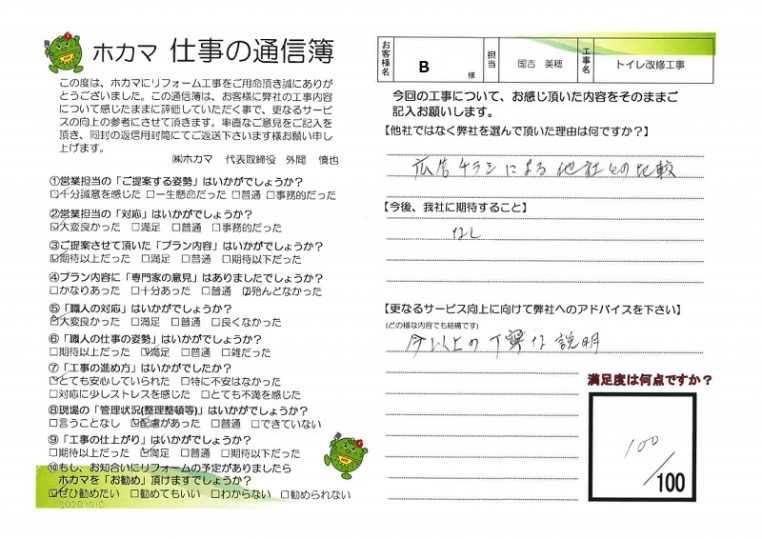 ホカマ 仕事の通信簿
この度は、ホカマにリフォーム工事をご用命頂き誠にありが
とうございました。この通信簿は、お客様に弊社の工事内容
について感じたままに評価していただく事で、更なるサービ
スの向上の参考にさせて頂きます。率直なご意見をご記入を
頂き、同封の返信用封筒にてご返送下さいます様お願い申し
上げます。
㈱ホカマ 代表取締役 外間 慎也
①営業担当の「ご提案する姿勢」はいかがでしょうか?
☑十分誠意を感じた □一生懸命だった □普通 □事務的だった
②営業担当の「対応」はいかがでしょうか?
☑大変良かった □満足 □普通 □事務的だった
③ご提案させて頂いた「プラン内容」はいかがでしょうか?
☑期待以上だった □満足 □普通 □期待以下だった
④プラン内容に「専門家の意見」はありましたでしょうか?
□かなりあった □十分あった □普通 ☑殆んどなかった
⑤「職人の対応」はいかがでしょうか?
☑大変良かった □満足 □普通 □良くなかった
⑥「職人の仕事の姿勢」はいかがでしょうか?
□期待以上だった ☑満足 □普通 □雑だった
⑦「工事の進め方」はいかがでしたか?
☑とても安心していられた □特に不安はなかった
□対応に少しストレスを感じた □とても不満を感じた
⑧現場の「管理状況(整理整頓等)」はいかがでしょうか?
□言うことなし ☑配慮があった □普通 □できていない
⑨「工事の仕上がり」はいかがでしょうか?
□期待以上だった ☑満足 □普通 □期待以下だった
⑩もし、お知合いにリフォームの予定がありましたら
ホカマを「お勧め」頂けますでしょうか?
☑ぜひ勧めたい □勧めてもいい □わからない □勧められない
お客様名 B 様 担当 国吉 美穂 工事名 トイレ改修工事
今回の工事について、お感じ頂いた内容をそのままご
記入お願いします。
【他社ではなく弊社を選んで頂いた理由は何ですか?】
広告チラシによる他社との比較
【今後、我社に期待すること】
なし
【更なるサービス向上に向けて弊社へのアドバイスを下さい】
(どの様な内容でも結構です)
今以上の丁寧な説明
満足度は何点ですか?
100
/100